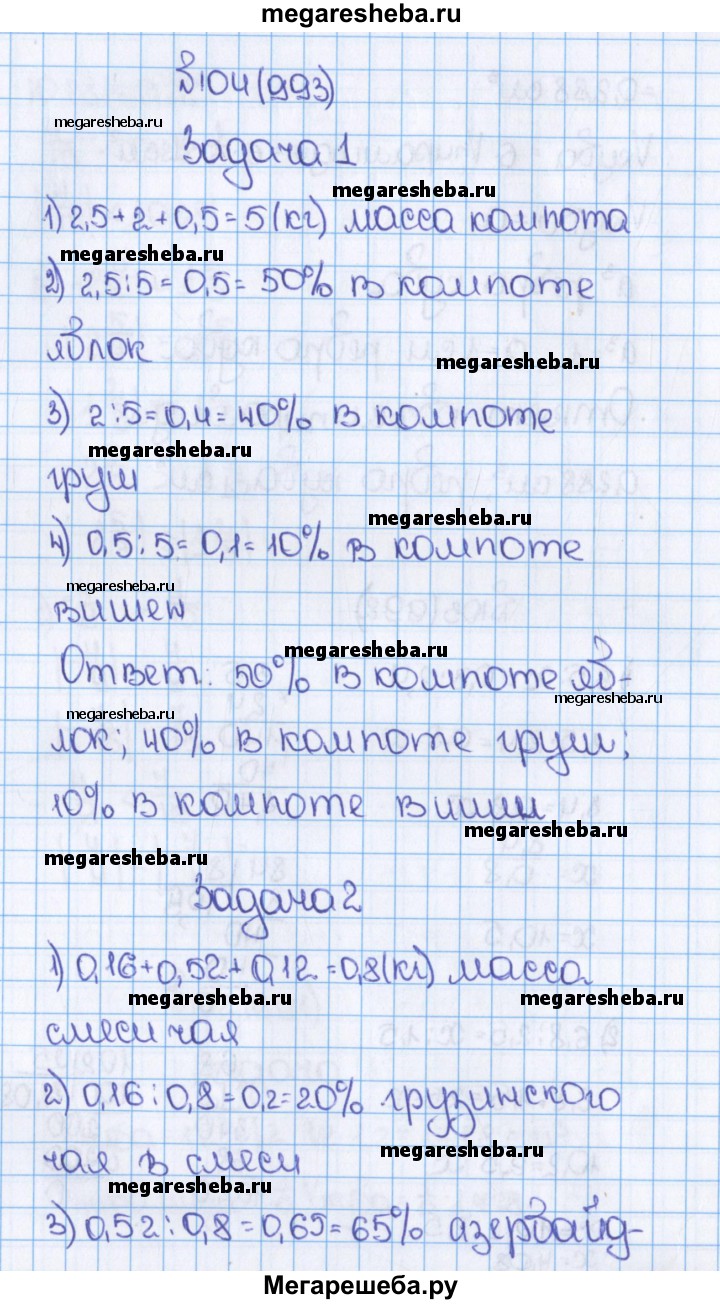 megaresheba.ru
№104(993)
megaresheba.ru
Задача 1
megaresheba.ru
1) 2,5+2+0,5=5(кг) масса компота
megaresheba.ru
2) 2,5:5=0,5=50% в компоте
яблок
megaresheba.ru
3) 2:5=0,4=40% в компоте
megaresheba.ru
груш
megaresheba.ru
4) 0,5:5=0,1=10% в компоте
megaresheba.ru
вишен
megaresheba.ru
Ответ: 50% в компоте яб-
megaresheba.ru
megaresheba.ru
лок; 40% в компоте груш;
10% в компоте вишни
megaresheba.ru
megaresheba.ru
Задача 2
1) 0,16+0,52+0,12=0,8(кг) масса
megaresheba.ru megaresheba.ru
смеси чая
2) 0,16:0,8=0,2=20% грузинского
megaresheba.ru
чая в смеси
megaresheba.ru
3) 0,52:0,8=0,65=65% азербайд-
Мегарешеба.ру